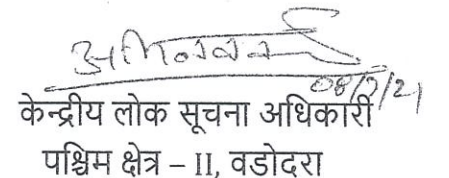 08/7/21
केन्द्रीय लोक सूचना अधिकारी
पश्चिम क्षेत्र – II, वडोदरा